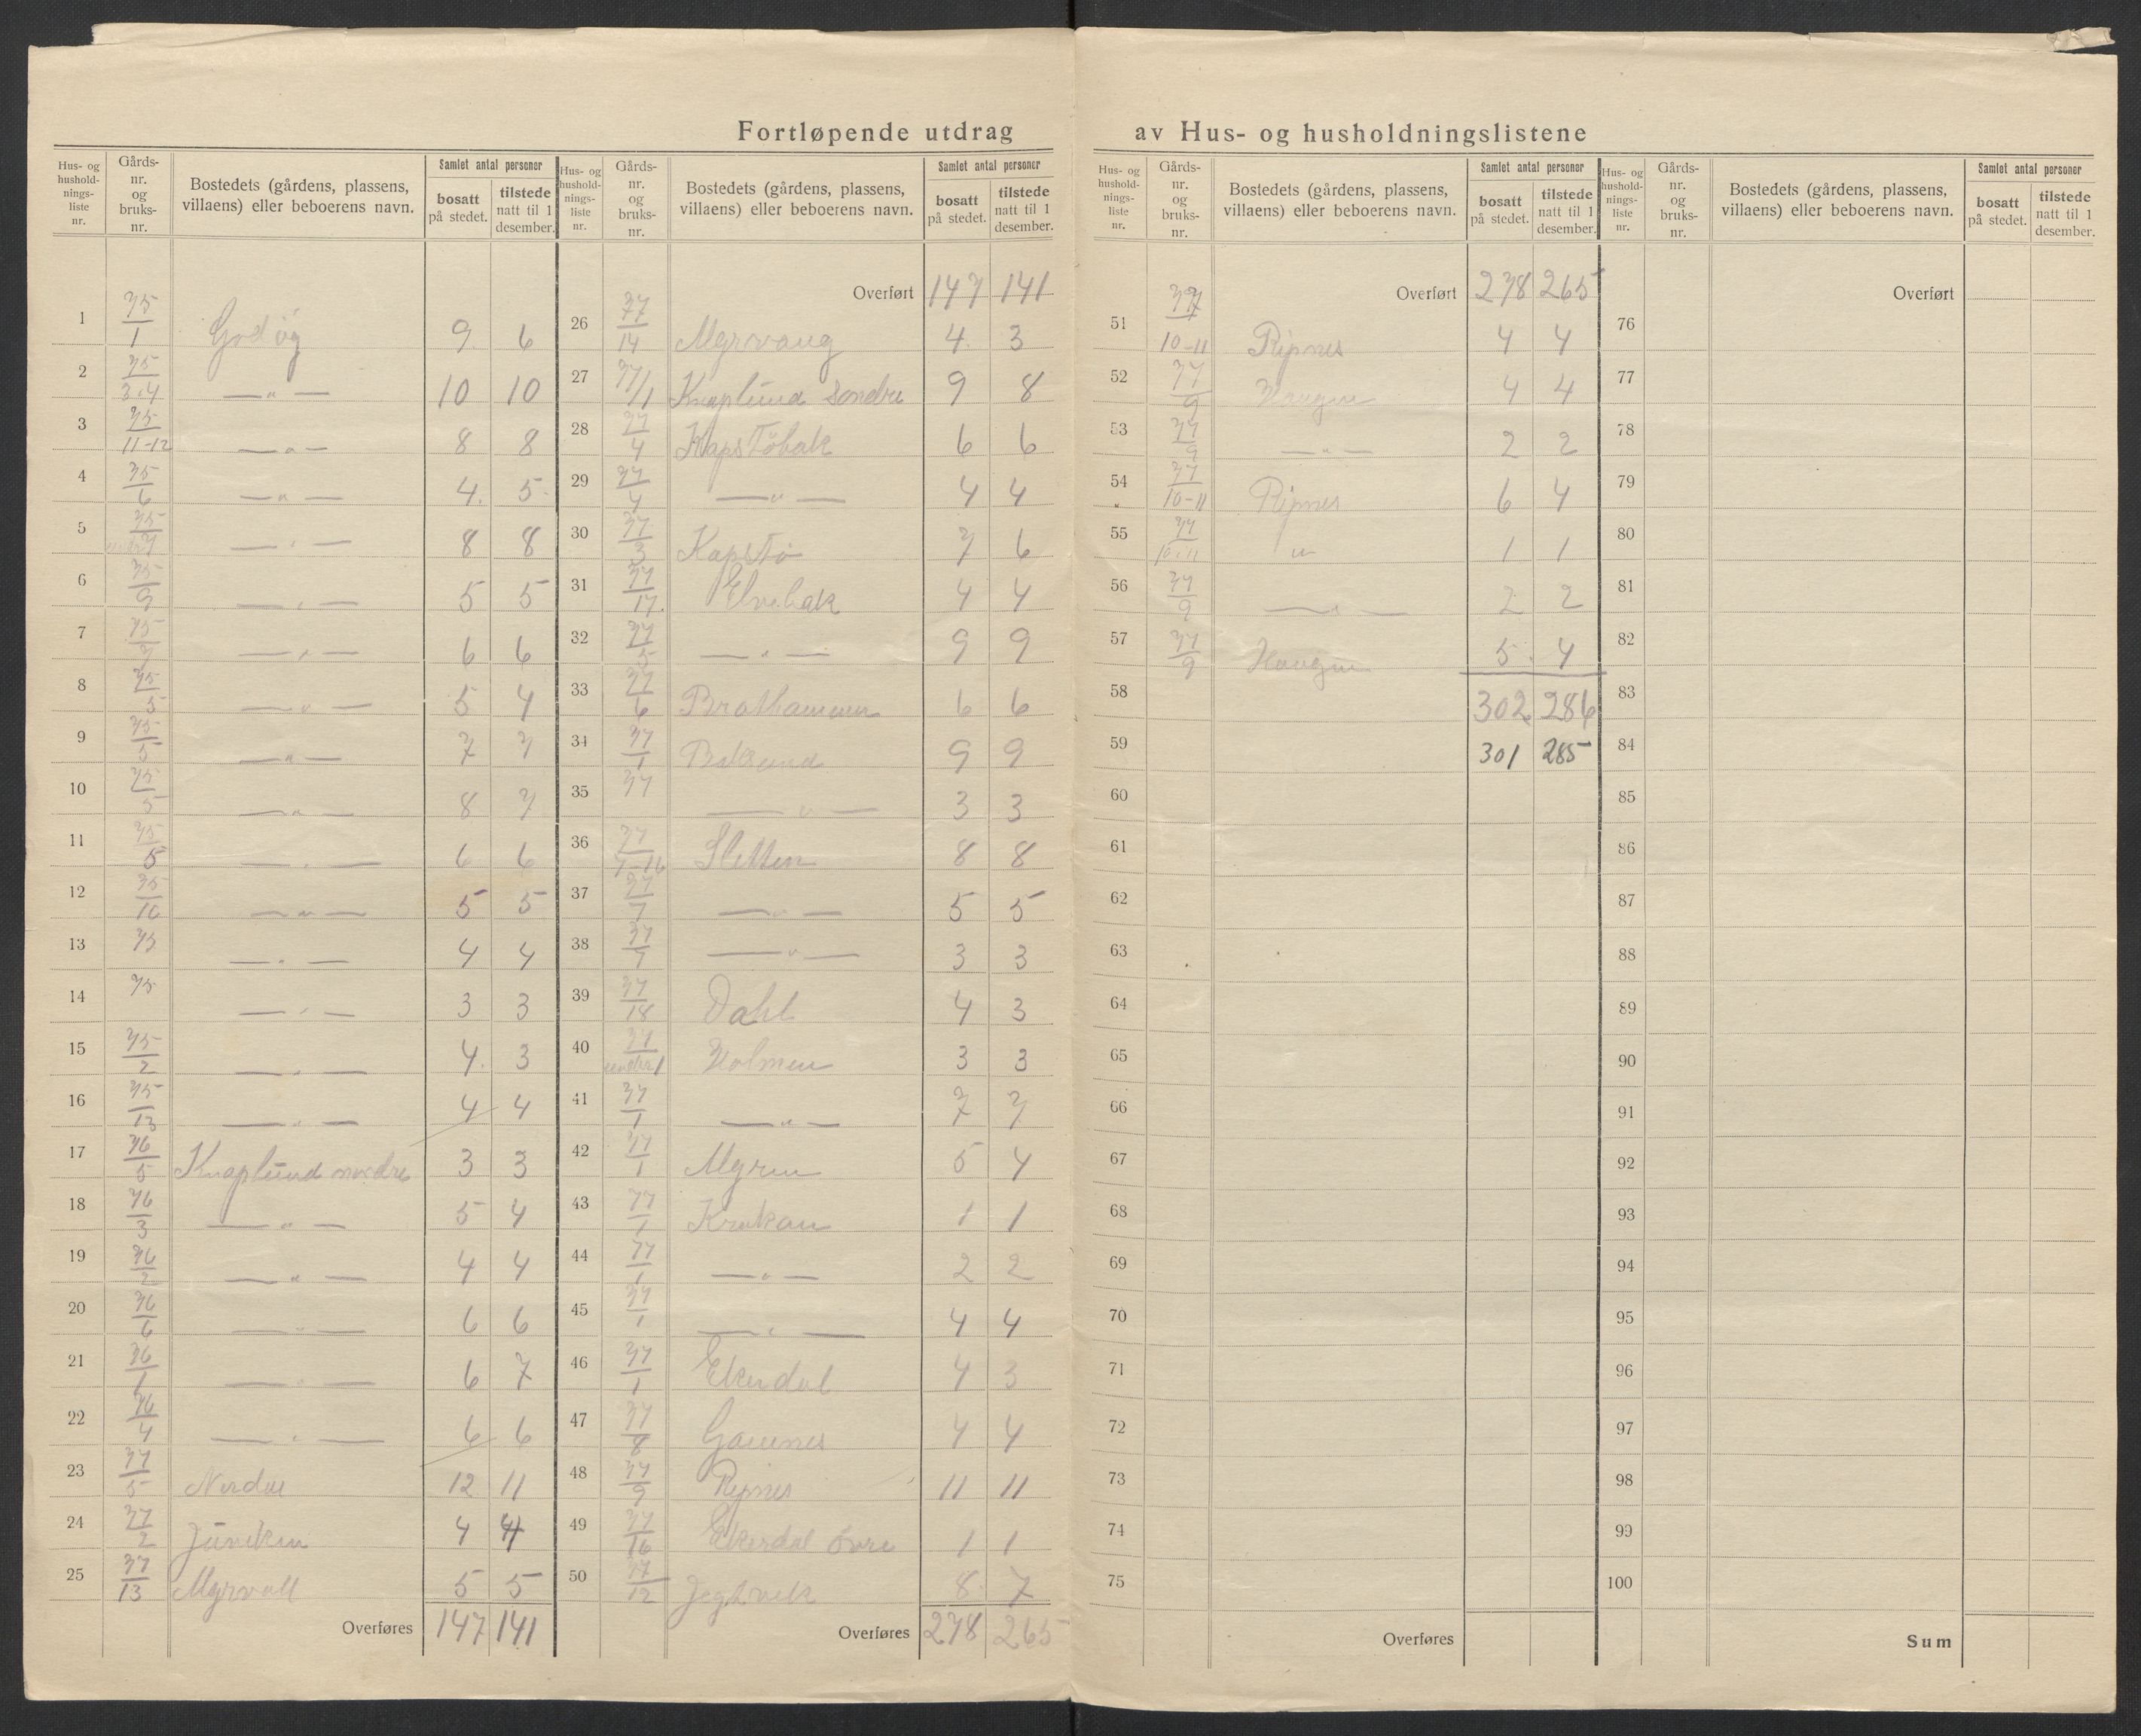 Fortløpende utdrag av Hus- og husholdningslistene
Hus- og hushold-nings-liste nr. Gårds-nr. og bruks-nr. Bostedets (gårdens, plassens, villaens) eller beboerens navn. Samlet antal personer bosatt på stedet. tilstede natt til 1 desember.
1 75/1 Godøy 9 6
2 75/3.4 —"— 10 10
3 75/11-12 —"— 8 8
4 75/6 —"— 4 5
5 75 —"— 8 8
6 75/9 —"— 5 5
7 75 —"— 6 6
8 75/5 —"— 5 4
9 75/5 —"— 7 7
10 75/5 —"— 8 7
11 75/5 —"— 6 6
12 75/10 —"— 5 5
13 75 —"— 4 4
14 75 —"— 3 3
15 75/2 —"— 4 3
16 75/13 —"— 4 4
17 76/5 Knaplund nordre 3 3
18 76/3 —"— 5 4
19 76/2 —"— 4 4
20 76/6 —"— 6 6
21 76/1 —"— 6 7
22 76/4 —"— 6 6
23 77/5 12 11
24 77/2 4 4
25 77/13 Myrvoll 5 5
Overføres 147 141
Hus- og hushold-nings-liste nr. Gårds-nr. og bruks-nr. Bostedets (gårdens, plassens, villaens) eller beboerens navn. Samlet antal personer bosatt på stedet. tilstede natt til 1 desember.
Overført 147 141
26 77/14 Myrvang 4 3
27 77/1 Knaplund søndre 9 8
28 77/4 Kapstøbak 6 6
29 77/4 —"— 4 4
30 77/3 Kapstø 7 6
31 77/17 Elvebak 4 4
32 77/5 —"— 9 9
33 77/6 Brathammer 6 6
34 77/1 9 9
35 77 —"— 3 3
36 77/7-16 Sletten 8 8
37 77/7 —"— 5 5
38 77/7 —"— 3 3
39 77/18 Dahl 4 3
40 77/under 1 Holmen 3 3
41 77/1 —"— 7 7
42 77/1 Myren 5 4
43 77/1 Krokan 1 1
44 77/1 —"— 2 2
45 77/1 —"— 4 4
46 77/1 Ekerdal 4 3
47 77/8 4 4
48 77/9 Ripnes 11 11
49 77/16 Ekerdal övre 1 1
50 77/12 Jegtvik 8 7
Overføres 278 265
Hus- og hushold-nings-liste nr. Gårds-nr. og bruks-nr. Bostedets (gårdens, plassens, villaens) eller beboerens navn. Samlet antal personer bosatt på stedet. tilstede natt til 1 desember.
Overført 278 265
51 77/10-11 Ripnes 4 4
52 77/9 Haugen 4 4
53 77/9 —"— 2 2
54 77/10-11 Ripnes 6 4
55 77/10-11 " 1 1
56 77/9 —"— 2 2
57 77/9 Haugen 5 4
58 302 286
59 301 285
60
61
62
63
64
65
66
67
68
69
70
71
72
73
74
75
Overføres
Hus- og hushold-nings-liste nr. Gårds-nr. og bruks-nr. Bostedets (gårdens, plassens, villaens) eller beboerens navn. Samlet antal personer bosatt på stedet. tilstede natt til 1 desember.
Overført
76
77
78
79
80
81
82
83
84
85
86
87
88
89
90
91
92
93
94
95
96
97
98
99
100
Sum